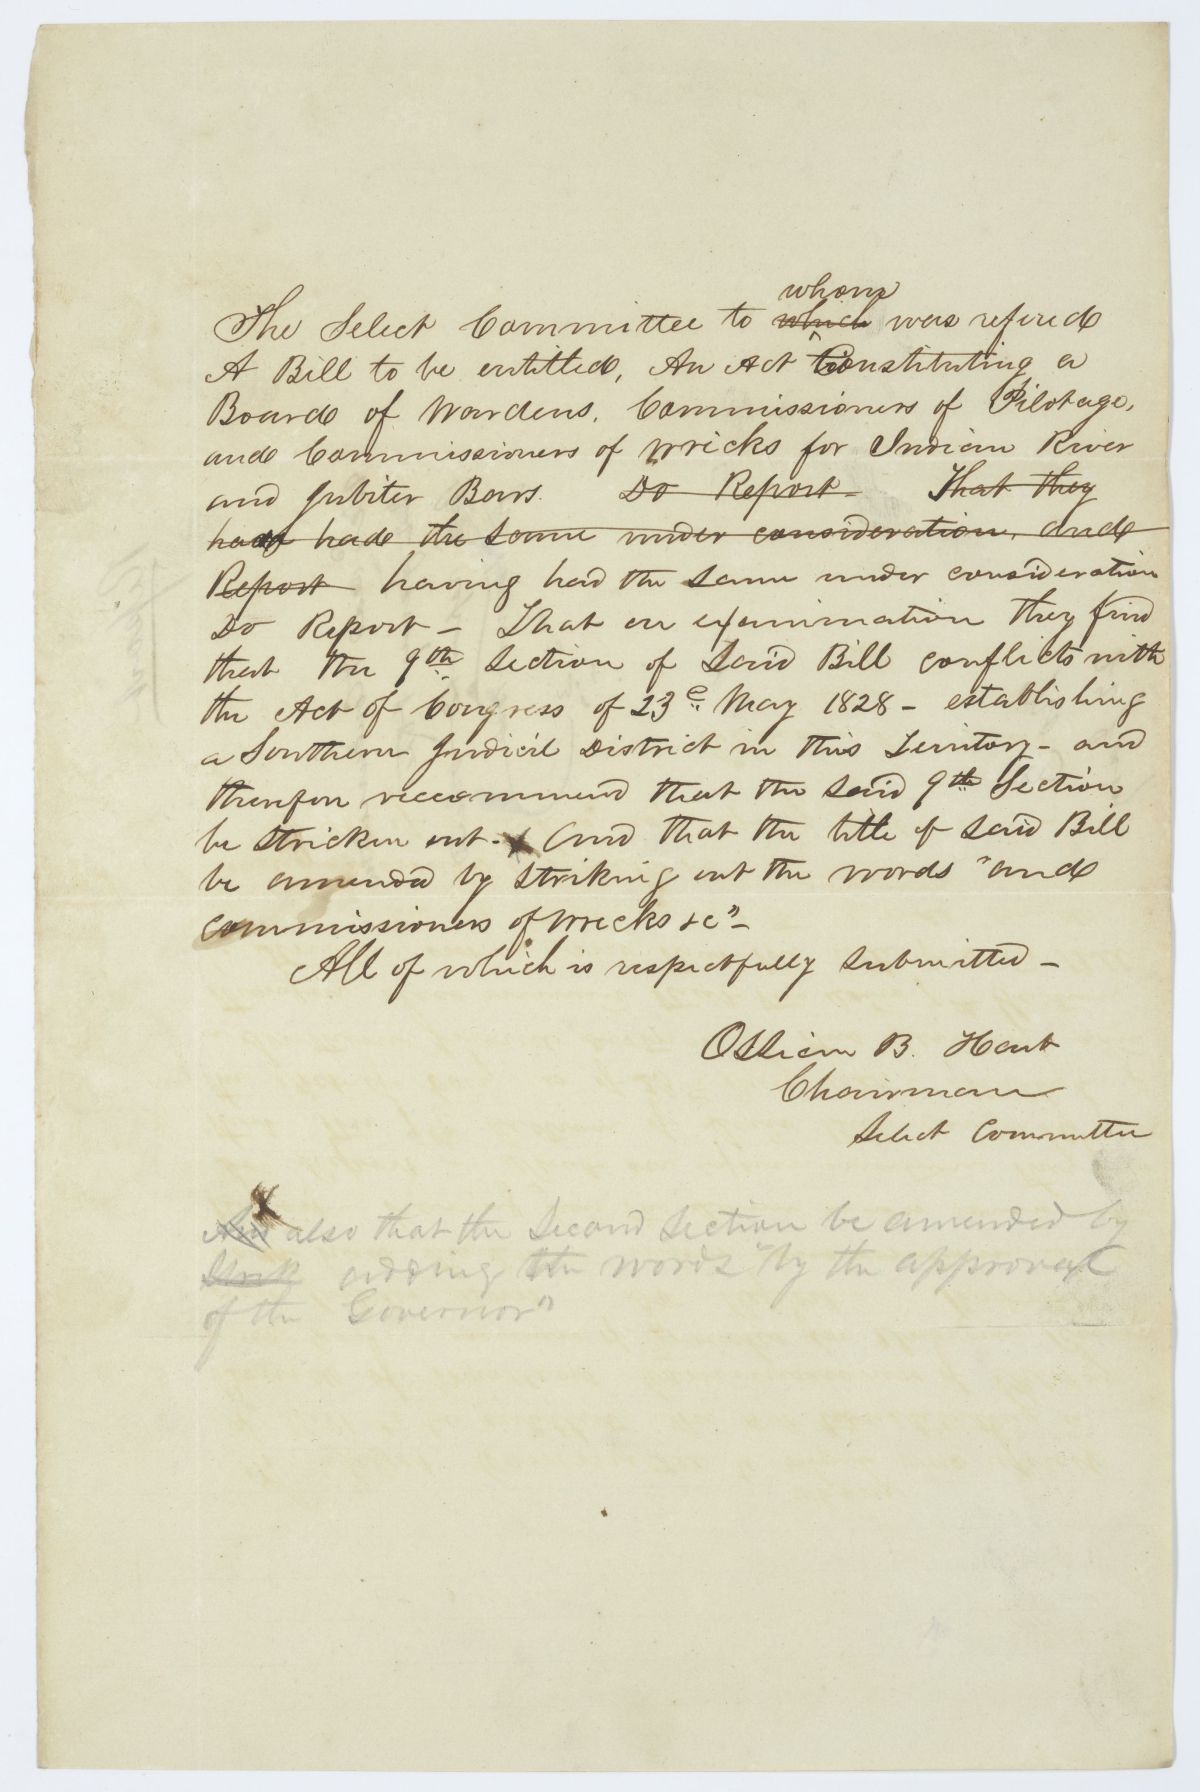 whom
The Select Committee to which was refered
A Bill to be entitled, An Act Constituting a
Board of Wardens, Commissioners of Pilotage,
and Commissioners of Wricks for Indian River
and Jubiter Bars. Do Report - That they
had the same under consideration, and
Report having had the same under consideration
Do Report - That on examination they find
that the 9th Section of Said Bill conflicts with
the Act of Congress of 23d May 1828 - establishing
a Southern Judicil District in this Territory - and
therefore reccommend that the said 9th Section
be stricken out. x And that the title of said Bill
be amended by striking out the words "and
commissioners of Wrecks &c" -
All of which is respectfully submitted -
Ossian B. Hart
Chairman
Select Committee
x
And also that the Second Section be amended by
Strik adding the words "by the approval
of the Governor"